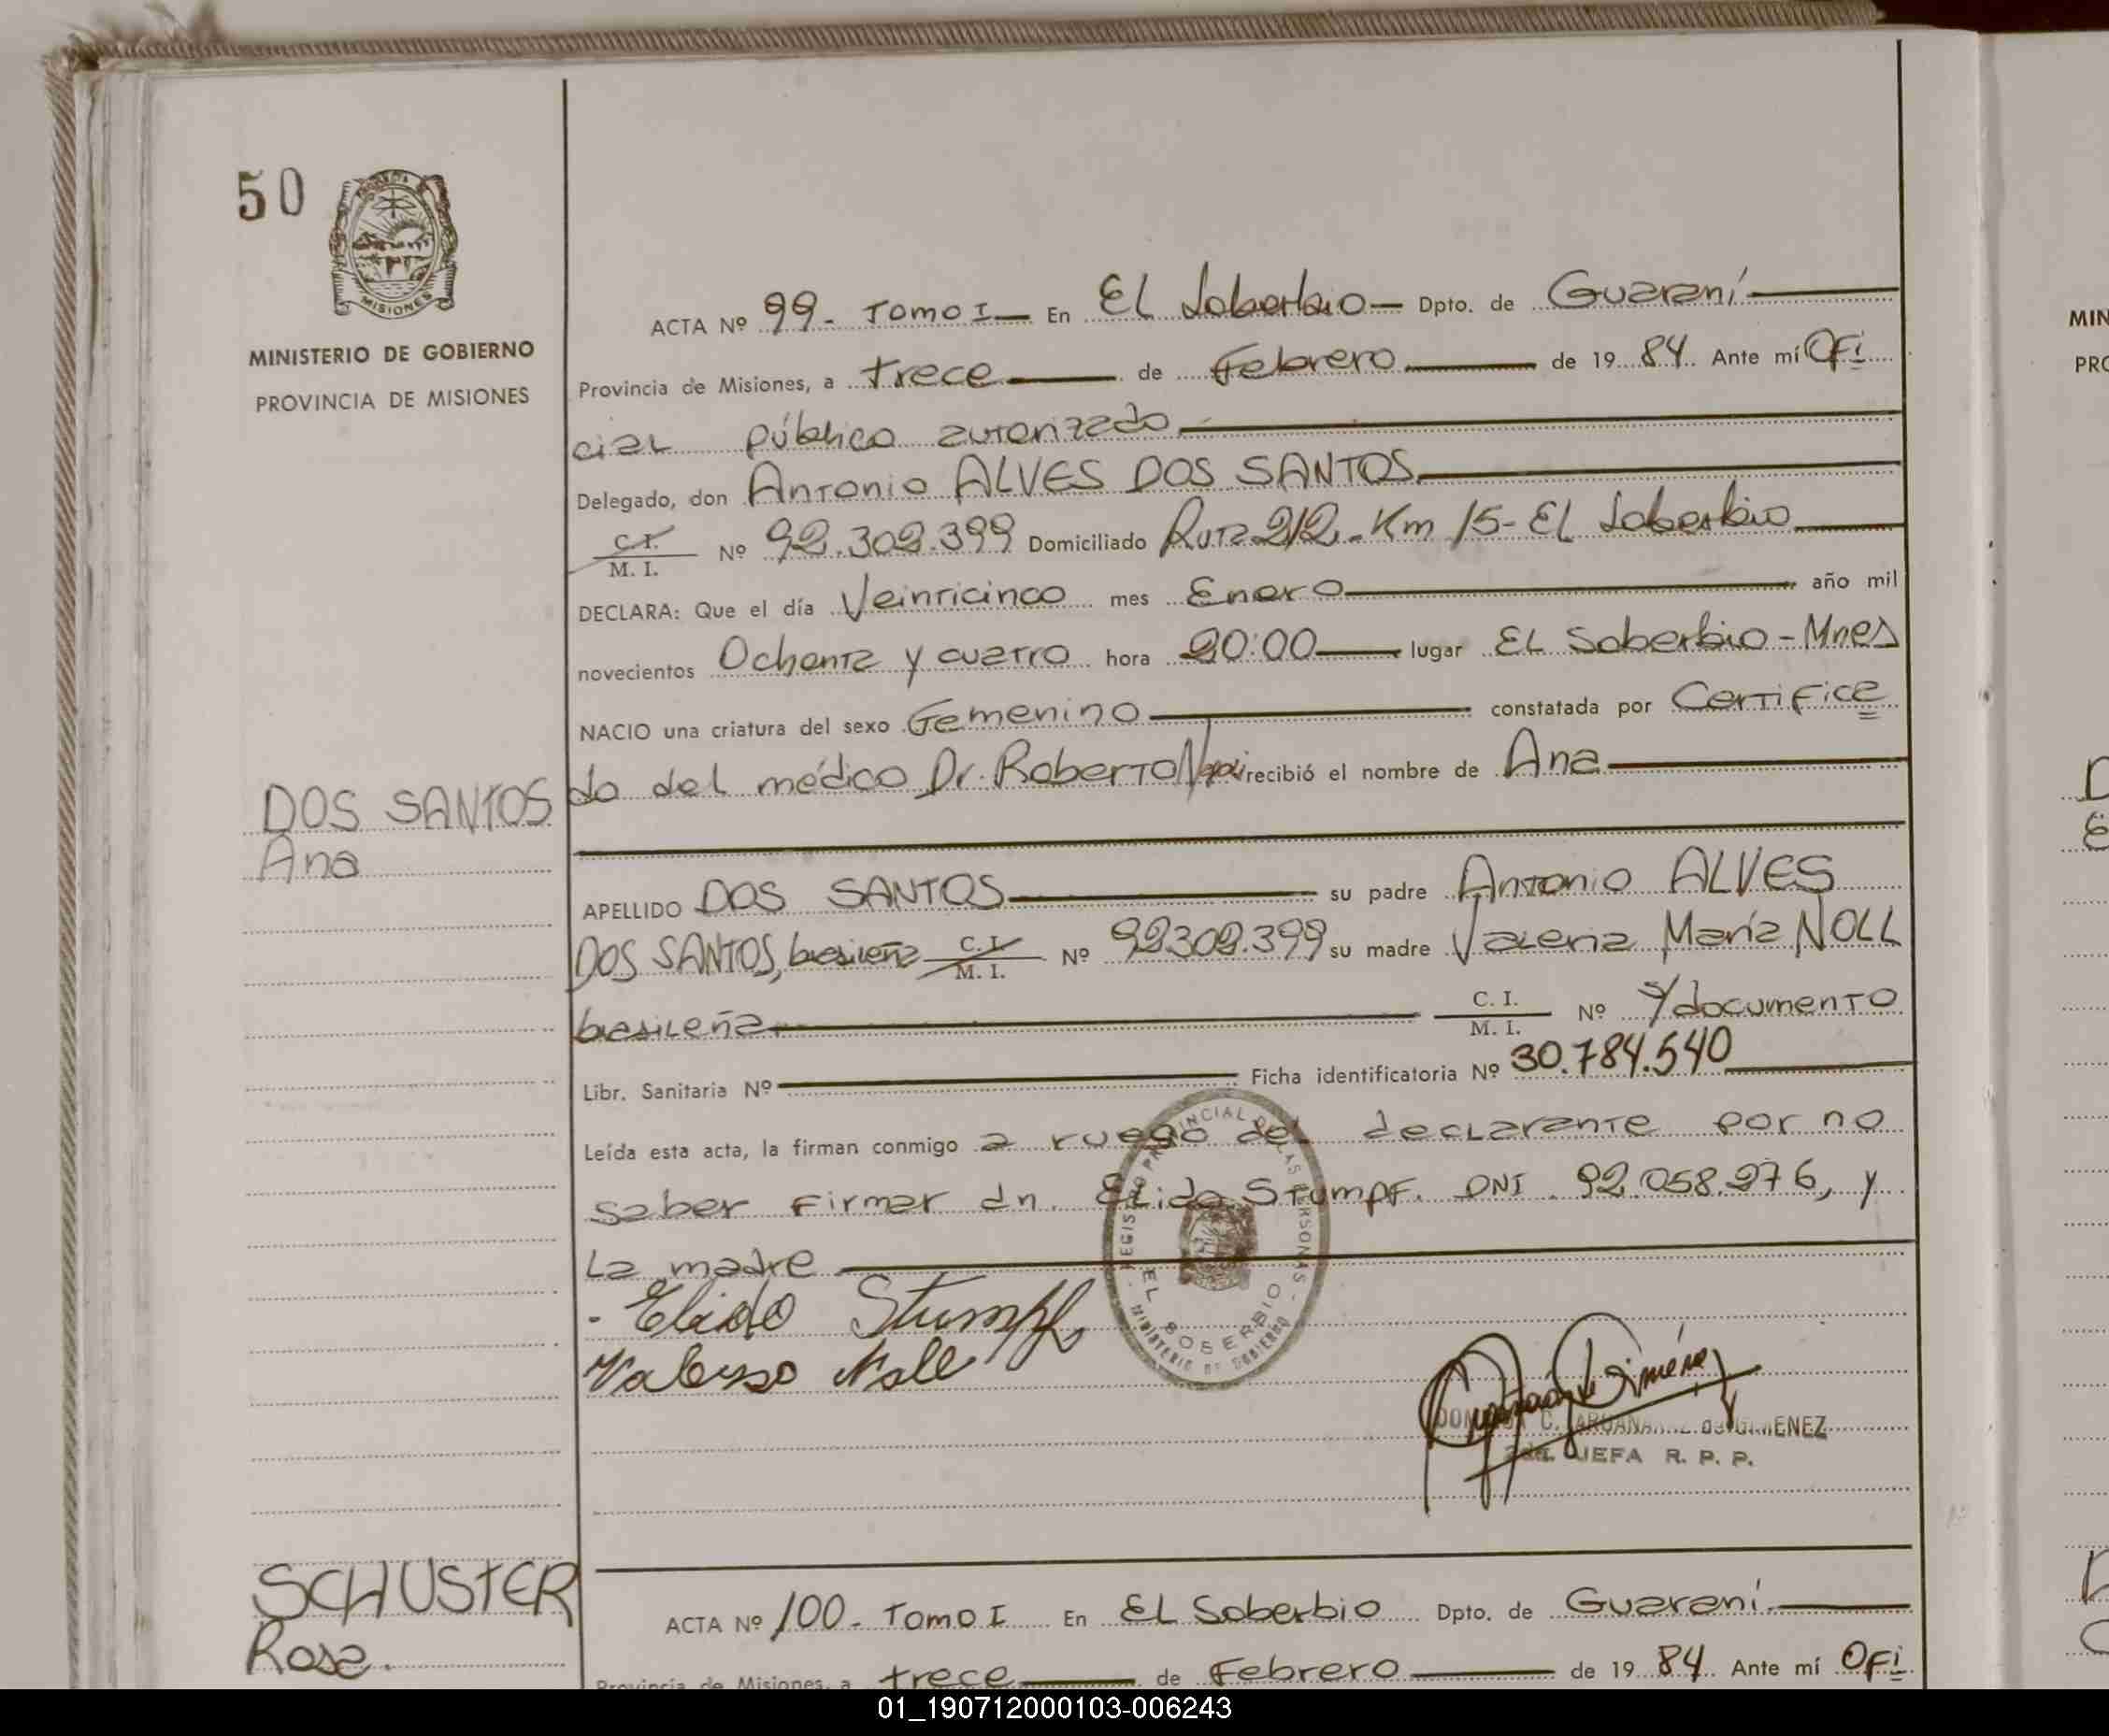 50
MISIONES
MINISTERIO DE GOBIERNO
PROVINCIA DE MISIONES
ACTA Nº 99- Tomo I— En El Soberbio— Dpto. de Guaraní
Provincia de Misiones, a trece de Febrero de 1984. Ante mí Ofi
cial público autorizado
Delegado, don Antonio ALVES DOS SANTOS
C.I. / M. I. Nº 92.302.399 Domiciliado Ruta 212- Km 15- El Soberbio
DECLARA: Que el día Veinticinco mes Enero año mil
novecientos Ochenta y cuatro hora 20:00 lugar El Soberbio - Mnes
NACIO una criatura del sexo Femenino constatada por Certifica
do del médico Dr. Roberto recibió el nombre de Ana
DOS SANTOS
Ana
APELLIDO DOS SANTOS su padre Antonio ALVES
DOS SANTOS, brasileña C.I. / M. I. Nº 92302.399 su madre Valeria María NOLL
brasileña C. I. / M. I. Nº s/documento
Libr. Sanitaria Nº Ficha identificatoria Nº 30.784.540
Leída esta acta, la firman conmigo a ruego del declarante por no
saber firmar dn. Elido Stumpf. DNI. 92.058.276, y
la madre
REGISTRO PROVINCIAL DE LAS PERSONAS
EL SOBERBIO
MINISTERIO DE GOBIERNO
- Elido Stumpf
Noll
C. de GIMENEZ
JEFA R. P. P.
SCHUSTER
Rosa.
ACTA Nº 100- Tomo I En El Soberbio Dpto. de Guaraní
Provincia de Misiones, a trece de Febrero de 1984. Ante mí Ofi
MIN
PRO
01_190712000103-006243